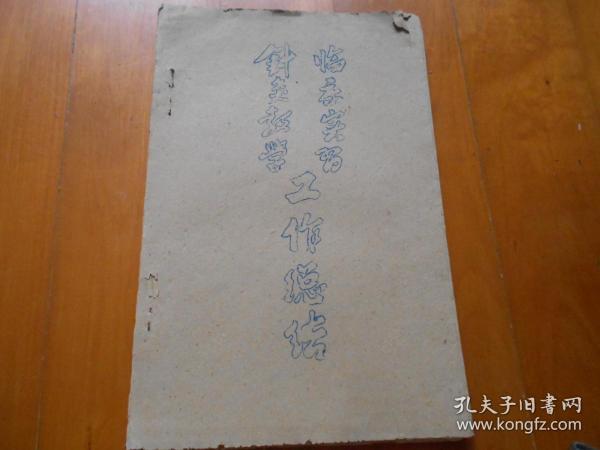 临床实习
針灸教学
工作總结
孔夫子旧書网
www.kongfz.com